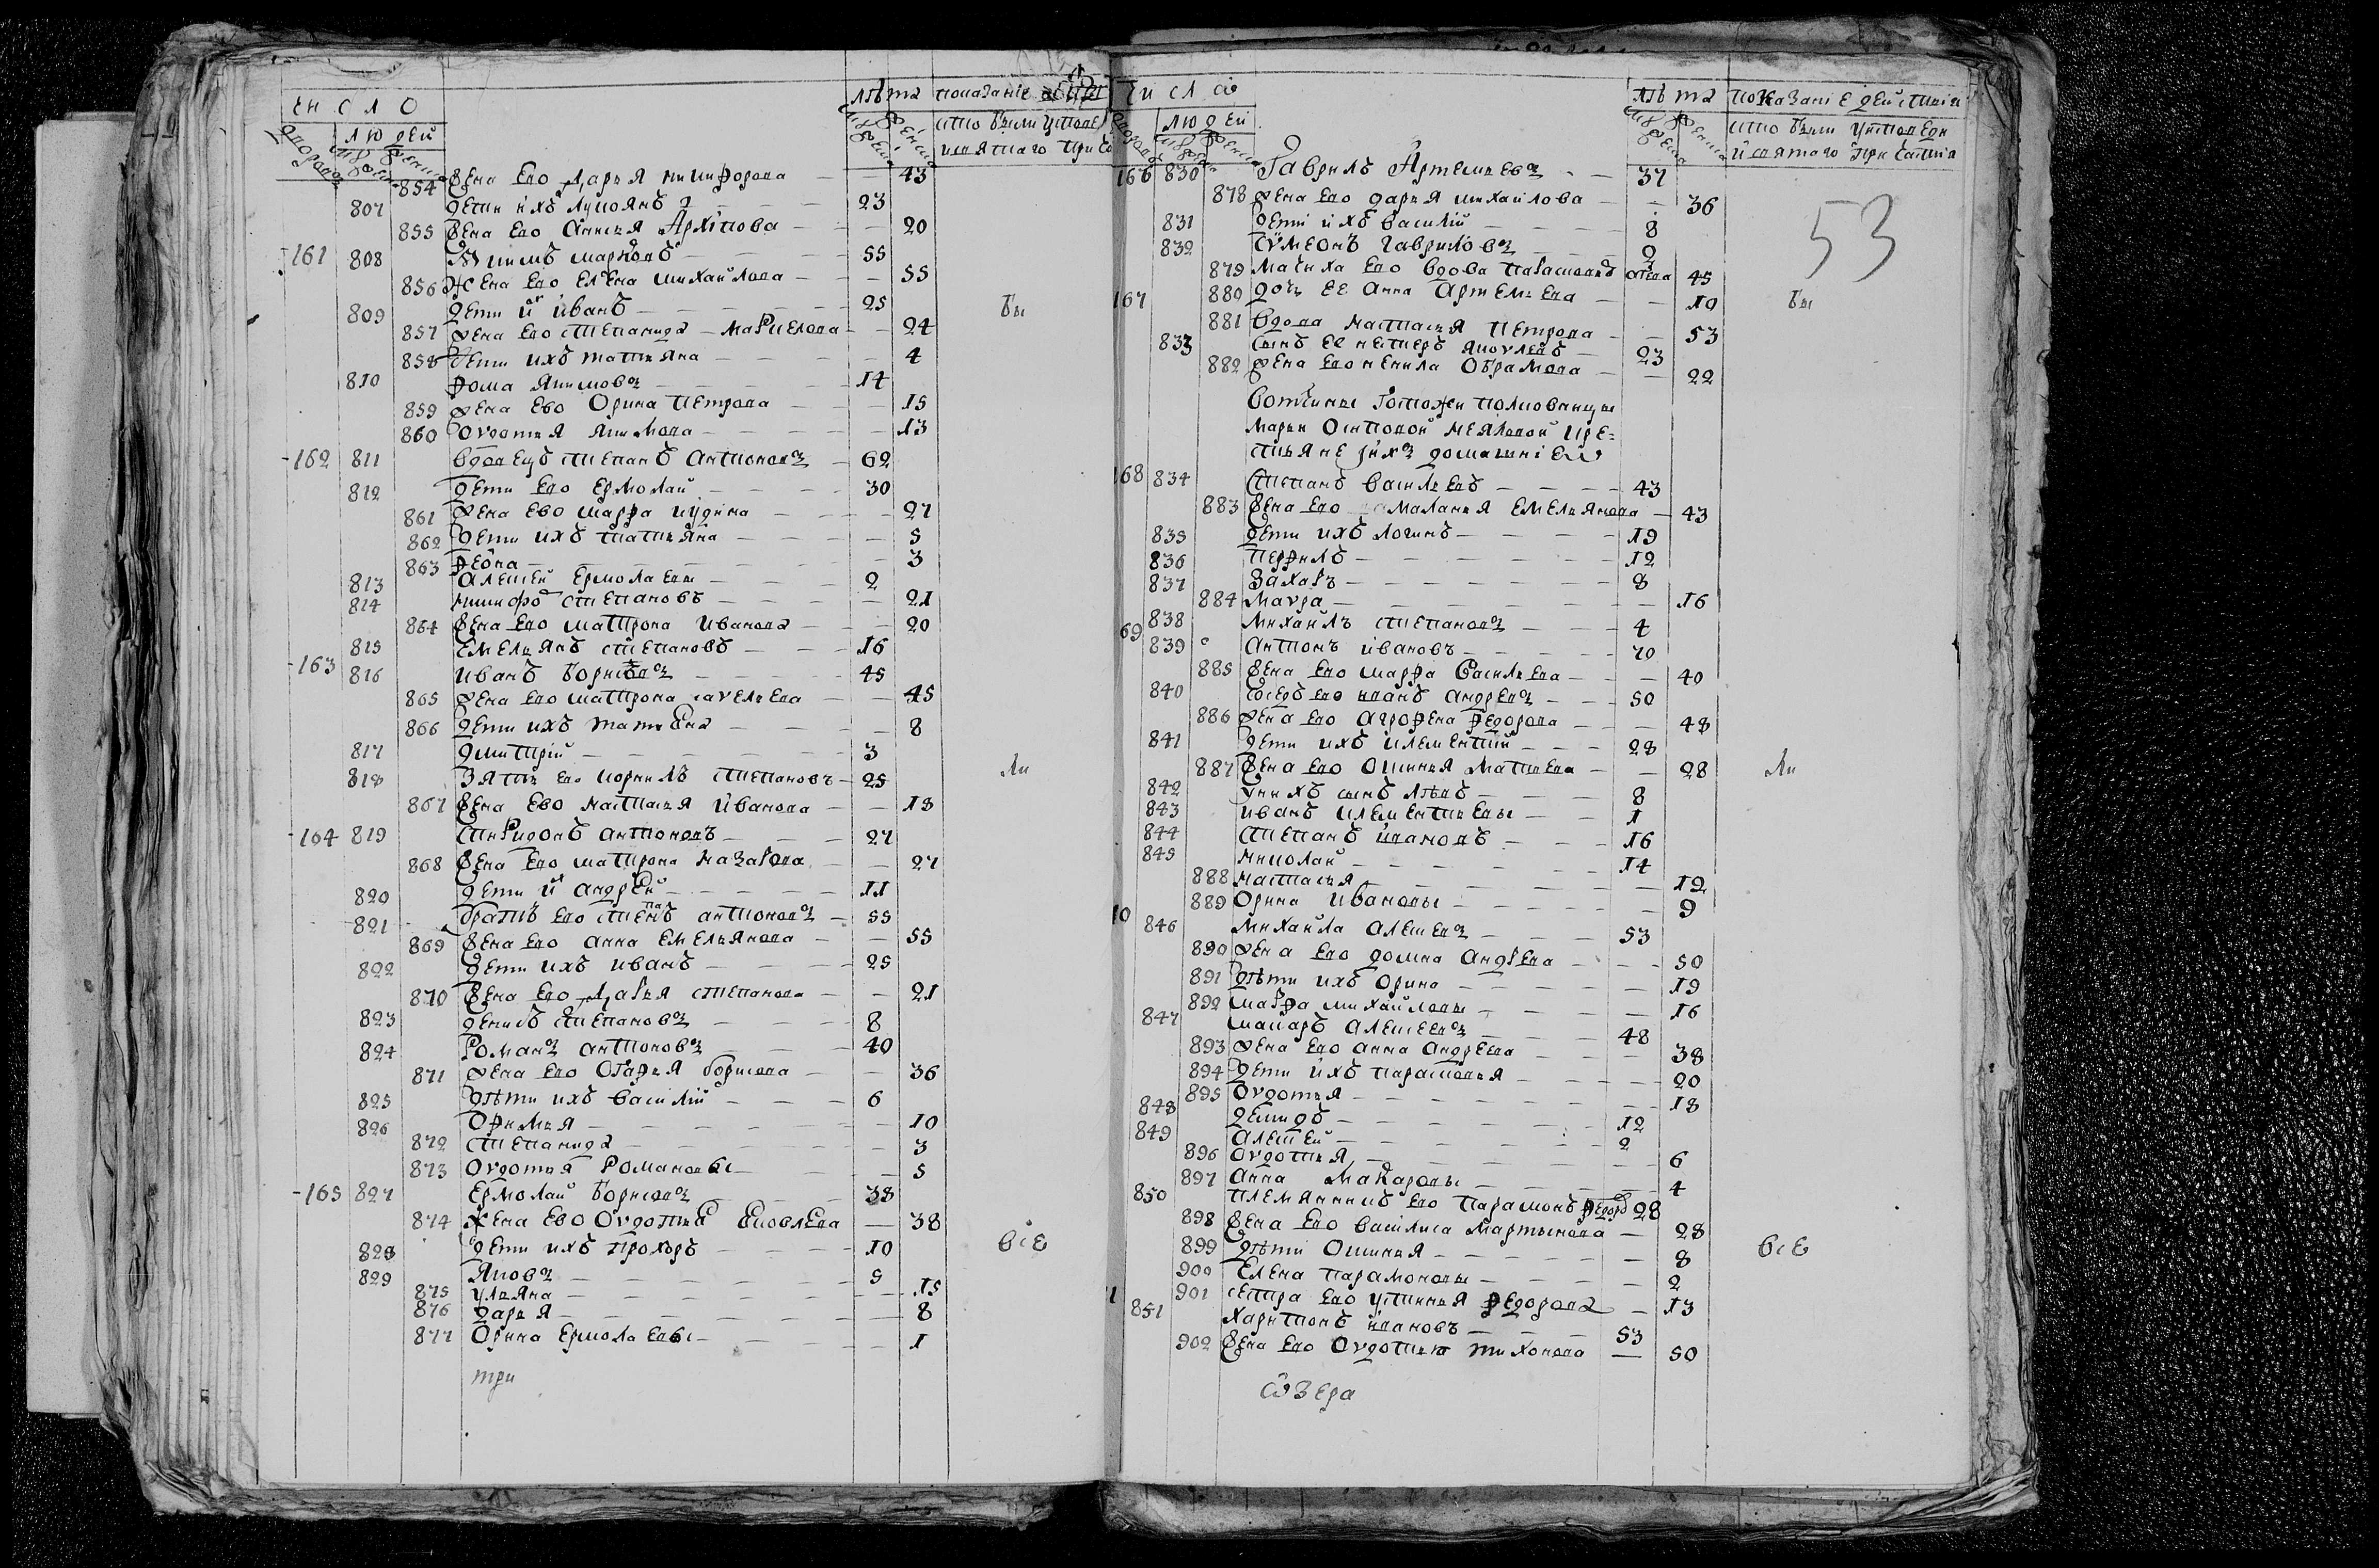 число лѣта показание
людей
854 жена ево Дарья никифорова 43
807 дети ихъ лукоянъ 23
855 жена ево Анисья Архипова 20
161 808 Якимъ марковъ 55
856 Жена ево Елена михайлова 55
809 дети их иванъ 25
857 жена ево степанида 24
858 дети ихъ татияна 4
810 фома якимовъ 14
859 жена ево Орина петрова 15
860 овдотья якимова 13
162 811 вдовецъ степанъ антоновъ 62
812 дети ево ермолай 30
861 жена ево марфа 27
862 дети ихъ татияна 5
863 3
813 алексей Ермолаевы 2
814 никифоръ степановъ 21
864 жена ево матрона иванова 20
815 Емельянъ степановъ 16
163 816 иванъ борисовъ 45
865 жена ево матрона савельева 45
866 дети ихъ татияна 8
817 дмитрий 3
818 зять ево корнилъ степановъ 25
867 жена ево настасья иванова 18
164 819 спиридонъ антоновъ 27
868 жена ево матрона назарова 27
820 дети их андрей 11
821 братъ ево степанъ антоновъ 55
869 жена ево анна Емельянова 55
822 дети ихъ иванъ 25
870 жена ево Дарья степанова 21
823 денисъ степановъ 8
824 Романъ антоновъ 40
871 жена ево борисова 36
825 дѣти ихъ василий 6
826 Офимья 10
872 степанида 3
873 овдотья Романовы 5
165 827 Ермолай борисовъ 38
874 Жена ево Овдотья Яковлева 38
828 дети ихъ прохоръ 10
829 Яковъ 5
875 ульяна 15
876 дарья 8
877 Орина Ермолаевы 1
бы
ли
все
три
число лѣта показание действия
людей что были у исповеди
и святаго причастия
53
166 830 Гаврилъ Артемьевъ 37
878 жена ево дарья михайлова 36
831 дети ихъ василий 8
832 Сумеонъ гавриловъ 2
879 мачиха ево вдова 45
880 дочь ее анна артемьева 10
167 881 вдова настасья петрова 53
833 сынъ ее нестеръ яковлевъ 23
882 жена ево ненила обрамова 22
вотчины госпожи полковницы
марьи Осиповой кре=
стьяне и их домашние
168 834 степанъ васильевъ 43
883 жена ево маланья Емельянова 43
835 дети ихъ логинъ 19
836 перфилъ 12
837 захаръ 8
884 мавра 16
838 михаилъ степановъ 4
69 839 антонъ ивановъ 70
885 жена ево марфа васильева 40
840 ево иванъ андреевъ 50
886 жена ево агрофена федорова 48
841 дети ихъ климентий 28
887 жена ево Оксинья матвеева 28
842 у нихъ сынъ левъ 8
843 иванъ климентиевы 1
844 степанъ ивановъ 16
845 николай 14
888 настасья 12
889 Орина ивановы 9
70 846 михайла алексеевъ 53
890 жена ево домна андреева 50
891 дѣти ихъ Орина 19
892 марфа михайловы 16
847 макаръ алексеевъ 48
893 жена ево анна андреева 38
894 дети ихъ парасковья 20
895 Овдотья 18
848 демидъ 12
849 алексей 2
896 Овдотья 6
897 анна Макаровы 4
850 племянникъ ево парамонъ федоровъ 28
898 жена ево василиса мартынова 28
899 дѣти Оксинья 8
900 Елена парамоновы 2
901 сестра ево устинья федорова 13
71 851 харитонъ ивановъ 53
902 жена ево Овдотья тихонова 50
бы
ли
все
озера